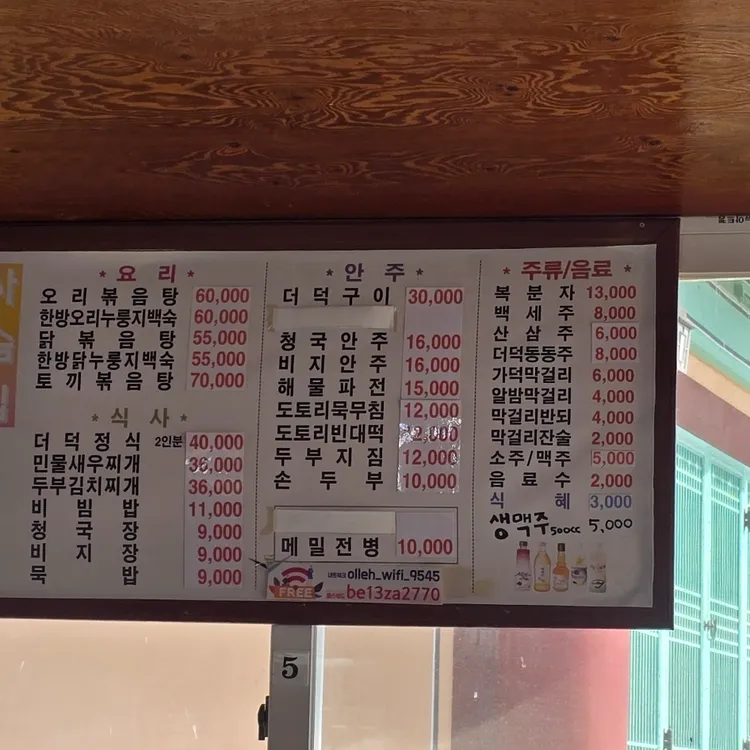 * 요 리 *
오 리 볶 음 탕 60,000
한방오리누룽지백숙 60,000
닭 볶 음 탕 55,000
한방닭누룽지백숙 55,000
토 끼 볶 음 탕 70,000
* 식 사 *
더 덕 정 식 2인분 40,000
민물새우찌개 36,000
두부김치찌개 36,000
비 빔 밥 11,000
청 국 장 9,000
비 지 장 9,000
묵 밥 9,000
* 안 주 *
더 덕 구 이 30,000
청 국 안 주 16,000
비 지 안 주 16,000
해 물 파 전 15,000
도토리묵무침 12,000
도토리빈대떡 12,000
두 부 지 짐 12,000
손 두 부 10,000
메 밀 전 병 10,000
FREE
olleh_wifi_9545
be13za2770
* 주류/음료 *
복 분 자 13,000
백 세 주 8,000
산 삼 주 6,000
더덕동동주 8,000
가덕막걸리 6,000
알밤막걸리 4,000
막걸리반되 4,000
막걸리잔술 2,000
소주/맥주 5,000
음 료 수 2,000
식 혜 3,000
생맥주 500cc 5,000
5